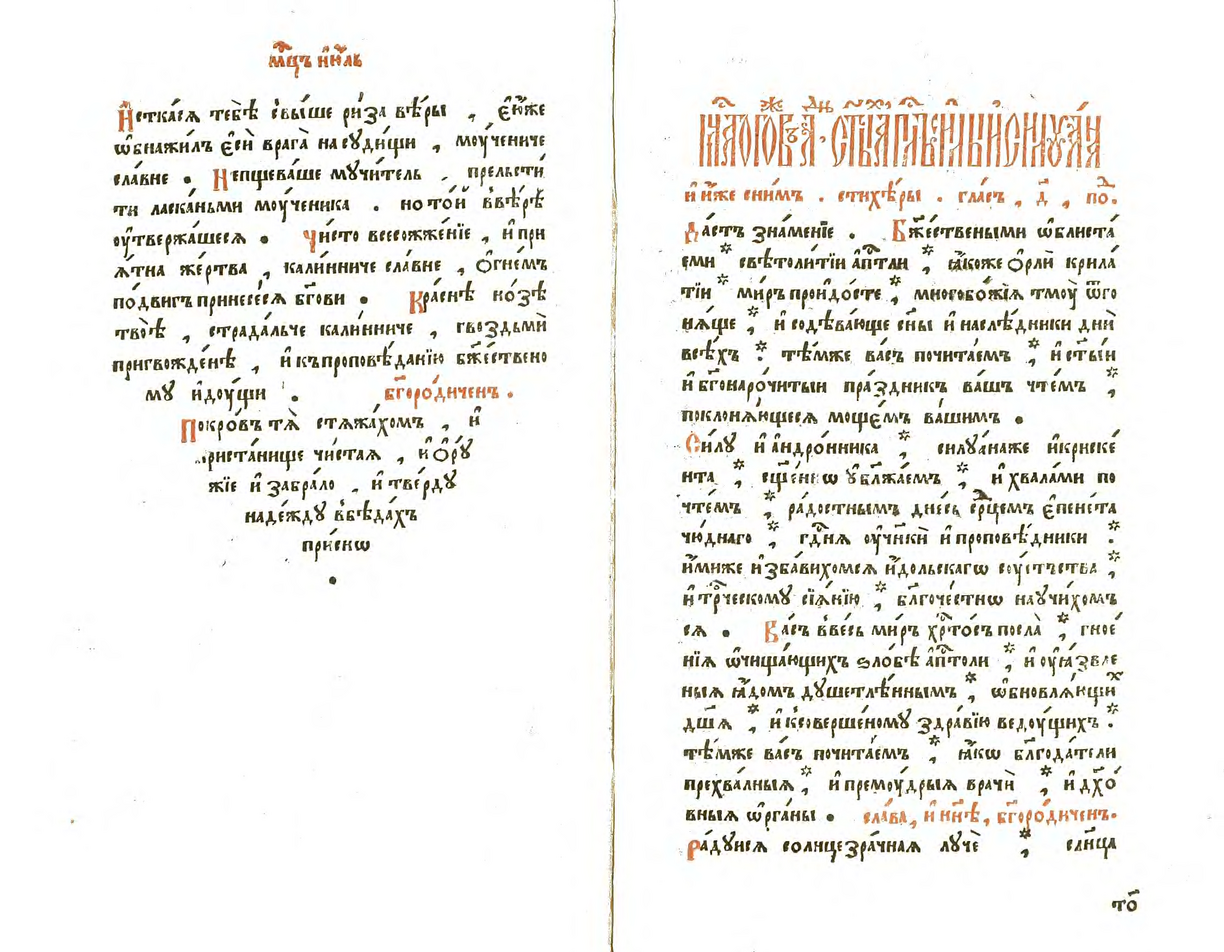 мц҃ъ ию́ль
И҆стка́сѧ тебѐ свы́ше ри́за вѣ́ры , є҆ю́же
ѡ҆бнажи́лъ є҆сѝ врага̀ насꙋди́щи , моу́чениче
сла́вне . Непщева́ше мꙋчи́тель , прельсти́
ти ласка́ньми моу́ченика . но то́й ввѣ́рѣ
оу҆твержа́шесѧ . Чи́сто всесожже́нїе , и҆ при
ѧ́тна же́ртва , кали́нниче сла́вне , о҆гне́мъ
по́двигъ принесе́сѧ бг҃ови . Кра́снѣ но́зѣ
твоѣ̀ , страда́льче кали́нниче , гвоздьмѝ
пригвожде́нѣ , и҆ къпроповѣ́данїю бж҃е́ствено
мꙋ и҆дꙋ́щи . бг҃оро́диченъ .
Покро́въ тѧ̀ стѧжа́хомъ , и҆
приста́нище чи́стаѧ , и҆ ѻ҆рꙋ́
жїе и҆ забра́ло , и҆ тве́рдꙋ
наде́ждꙋ вбѣда́хъ
при́снѡ
.
и҆ и҆́же сни́мъ . стихѣ́ры . гла́съ , д҃ , по.
Да́стъ зна́менїе . Бж҃е́ствеными ѡ҆блиста́
еми * свѣтоли́тїи а҆пⷭ҇тли , * ꙗ҆́коже ѻ҆рлѝ крила́
тїи * ми́ръ пройдо́сте , * многобо́жїѧ тмоу̀ ѿго
нѧ́ще , * и҆ содѣва́юще сн҃ы и҆ наслѣ́дники днѝ
всѣ́хъ : * тѣ́мже ва́съ почита́емъ , * и҆ ст҃ы́й
и҆ бг҃онаро́читый пра́здникъ ва́шъ чте́мъ , *
поклонѧ́ющесѧ моще́мъ ва́шимъ .
Си́лꙋ и҆ а҆ндро́нника , * силꙋа́наже и҆криске́
нта , * сщ҃е́ннѡ ᲂу҆блажа́емъ , * и҆ хвала́ми по
чте́мъ , * ра́достнымъ дне́сь се́рⷣцемъ є҆пене́та
чю́днаго , * гдⷭ҇нѧ оу҆чн҃кѝ и҆ проповѣ́дники : *
и҆́миже и҆зба́вихомсѧ и҆́дольскагѡ соуетства̀ , *
и҆ трⷪ҇ческомꙋ сїѧ́нїю , * благоче́стнѡ наꙋчи́хомъ
сѧ . Ва́съ вве́сь ми́ръ хрⷭ҇то́съ посла̀ , * гное
нїѧ ѡ҆чища́ющихъ ѕло́бѣ а҆пⷭ҇толи , * и҆ оу҆ꙗ҆́звле
ныѧ ꙗ҆́домъ дꙋшетлѣ́ннымъ , * ѡ҆бновлѧ́ющиⷯ
дш҃а , * и҆ ксоверше́номꙋ здра́вїю ведоу́щихъ : *
тѣ́мже ва́съ почита́емъ , * ꙗ҆́кѡ благода́тели
прехва́льныѧ , * и҆ премоу́дрыѧ врачѝ , * и҆ дх҃о́
вныѧ ѡ҆рга́ны . сла́ва, и҆ ны́нѣ, бг҃оро́диченъ.
Ра́дꙋйсѧ солнцезра́чнаѧ лꙋчѐ , * слн҃ца
то҃